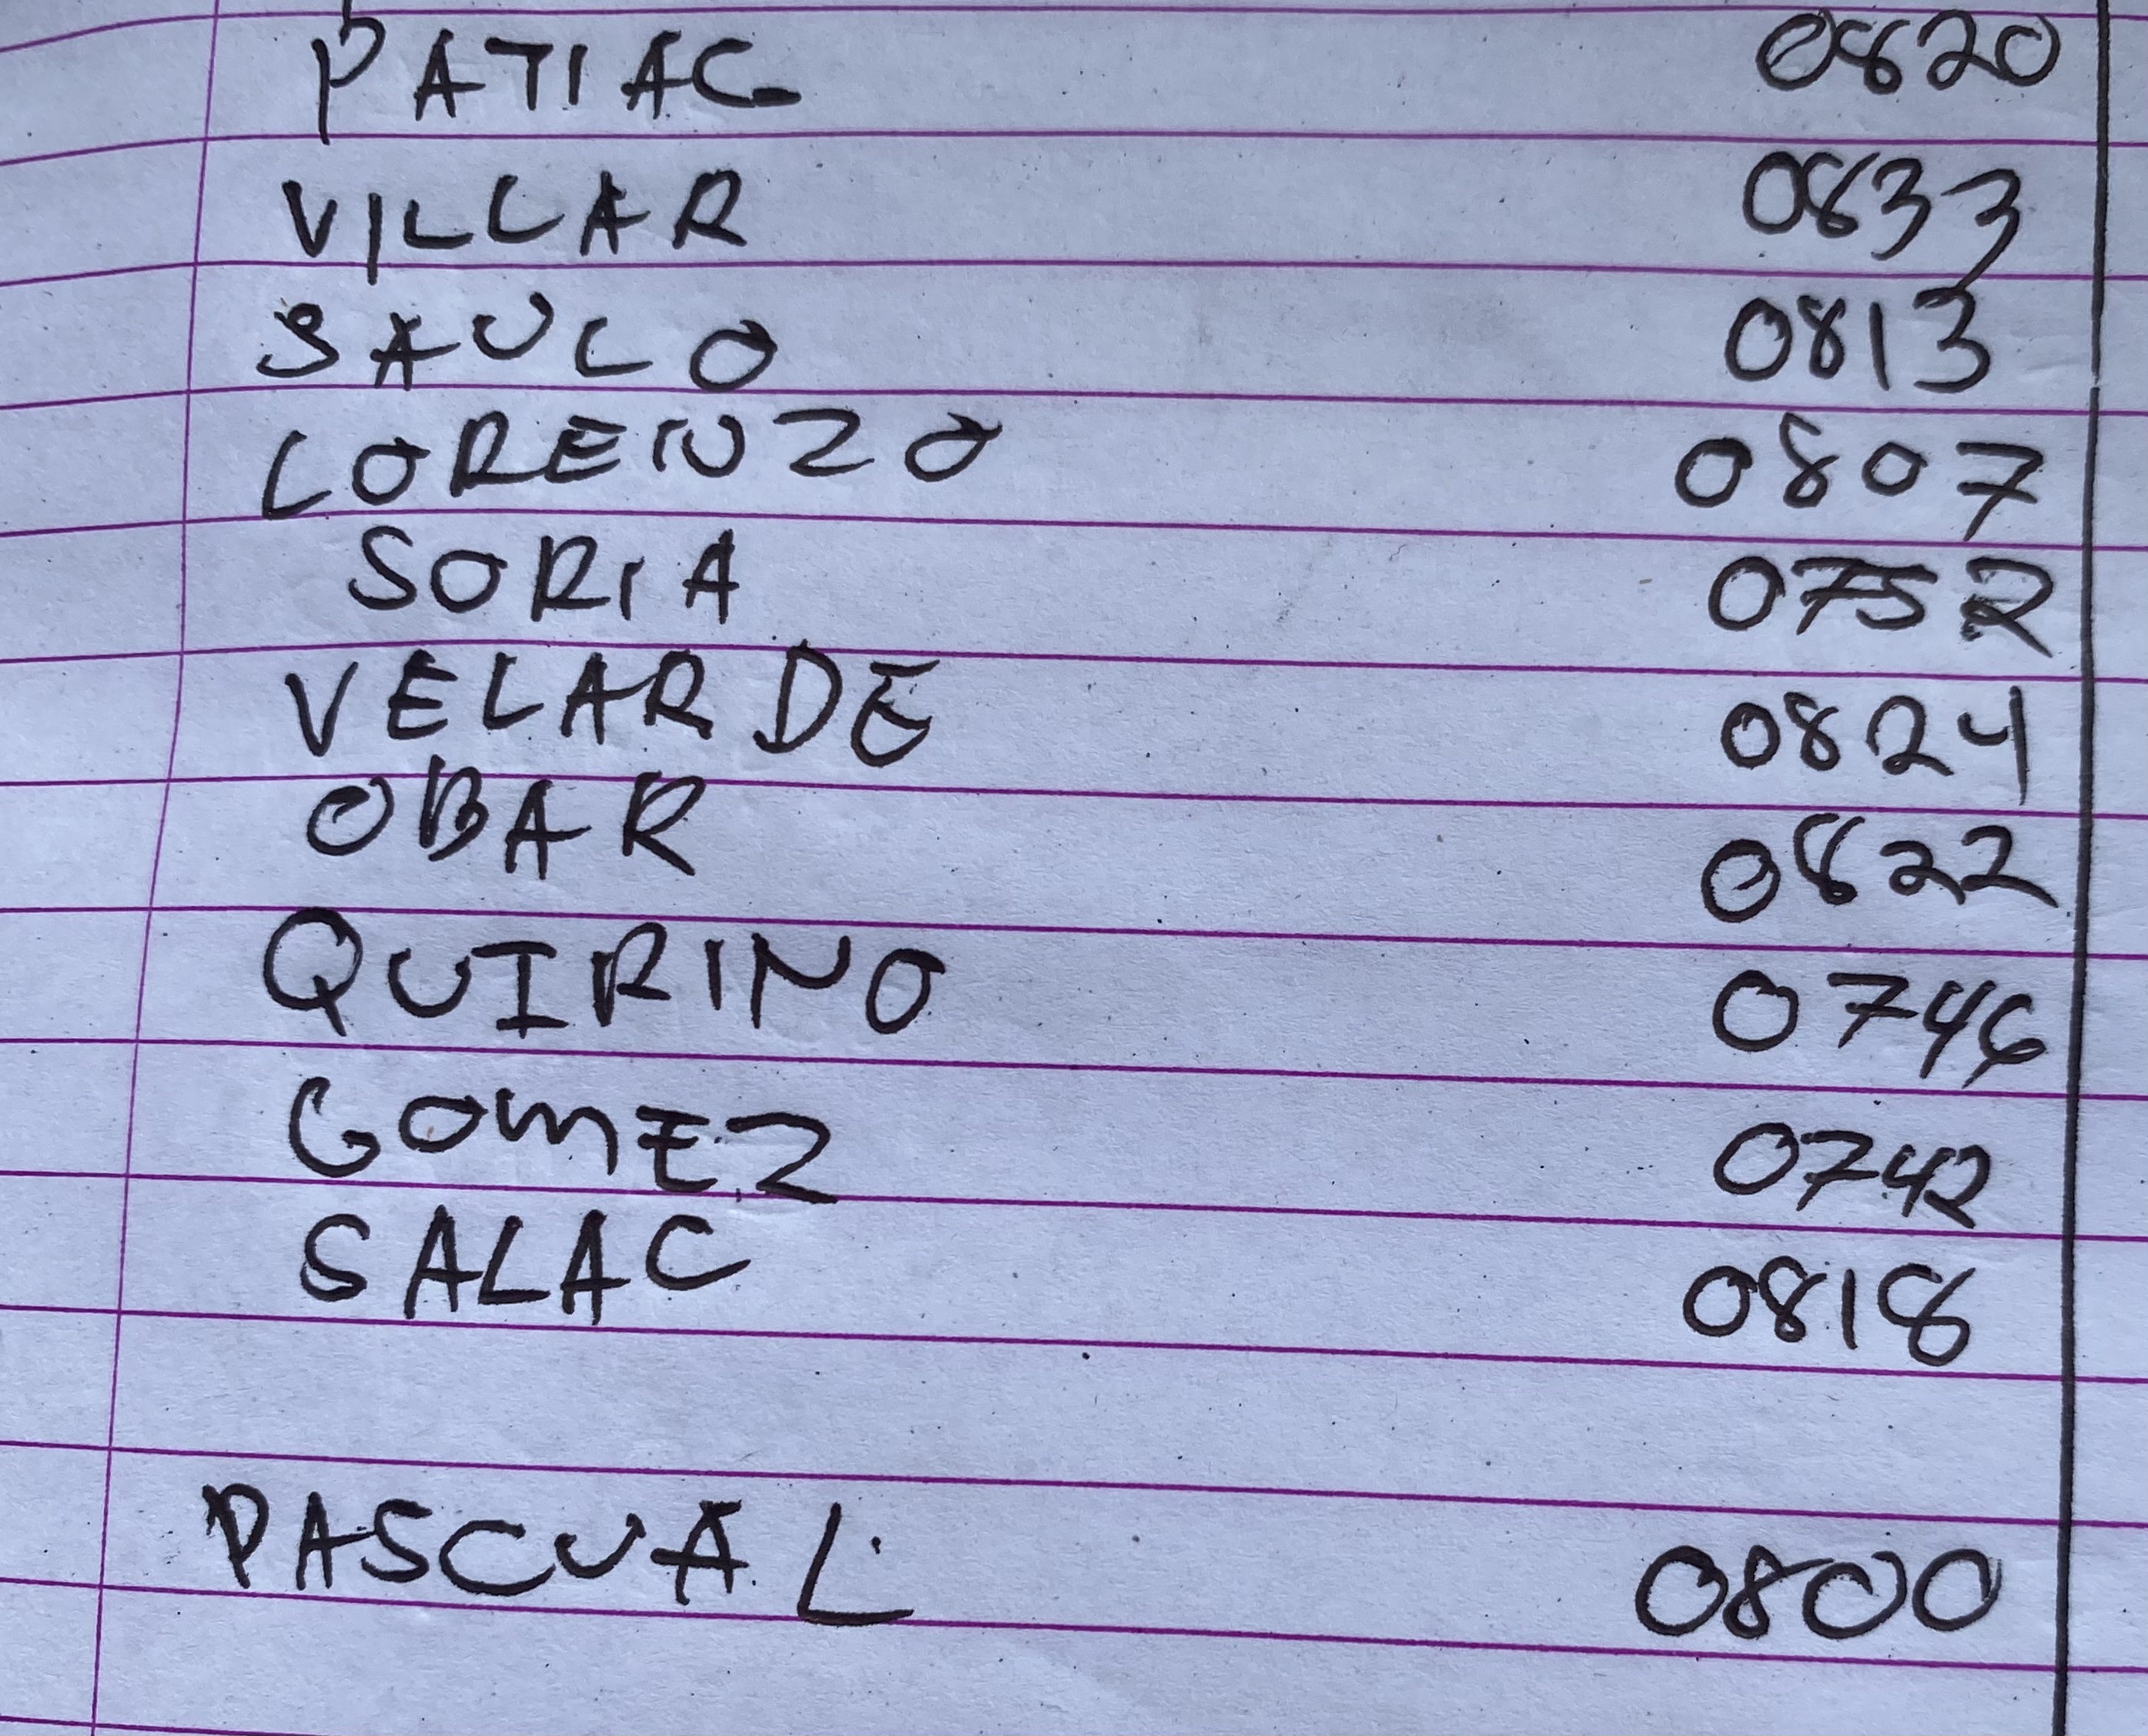 PATIAG 0820
VILLAR 0833
SAULO 0813
LORENZO 0807
SORIA 0752
VELARDE 0824
OBAR 0822
QUIRINO 0746
GOMEZ 0742
SALAC 0818
PASCUAL 0800